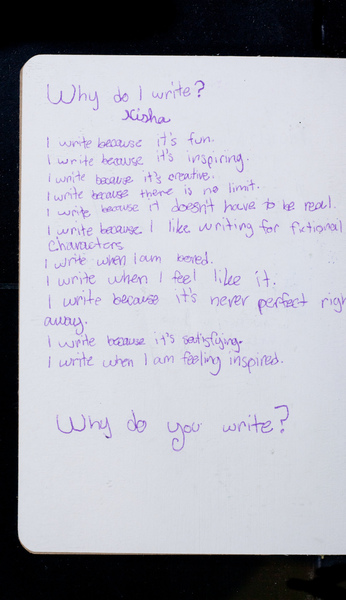 Why do I write?
Nisha
I write because it's fun.
I write because it's inspiring.
I write because it's creative.
I write because there is no limit.
I write because it doesn't have to be real.
I write because I like writing for fictional
characters
I write when I am bored.
I write when I feel like it.
I write because it's never perfect righ
away.
I write because it's satisfying.
I write when I am feeling inspired.
Why do you write?